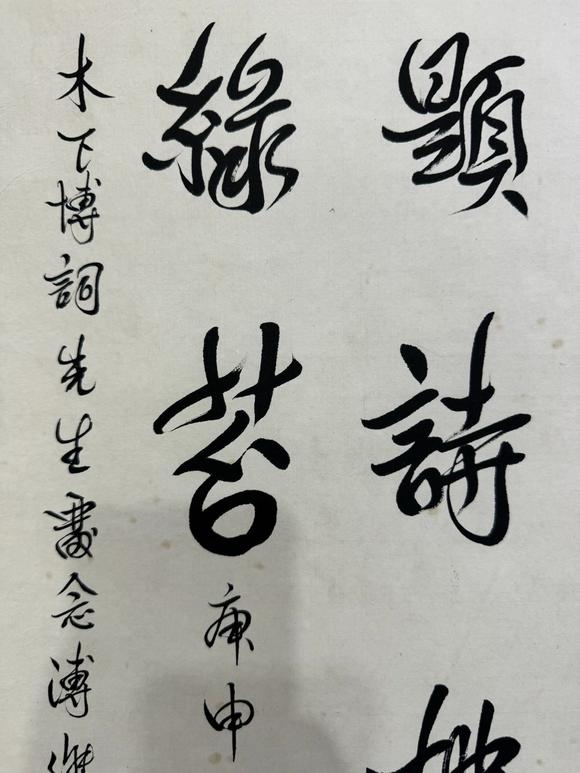 題詩
綠苔 庚申
木下博詞先生 念 溥